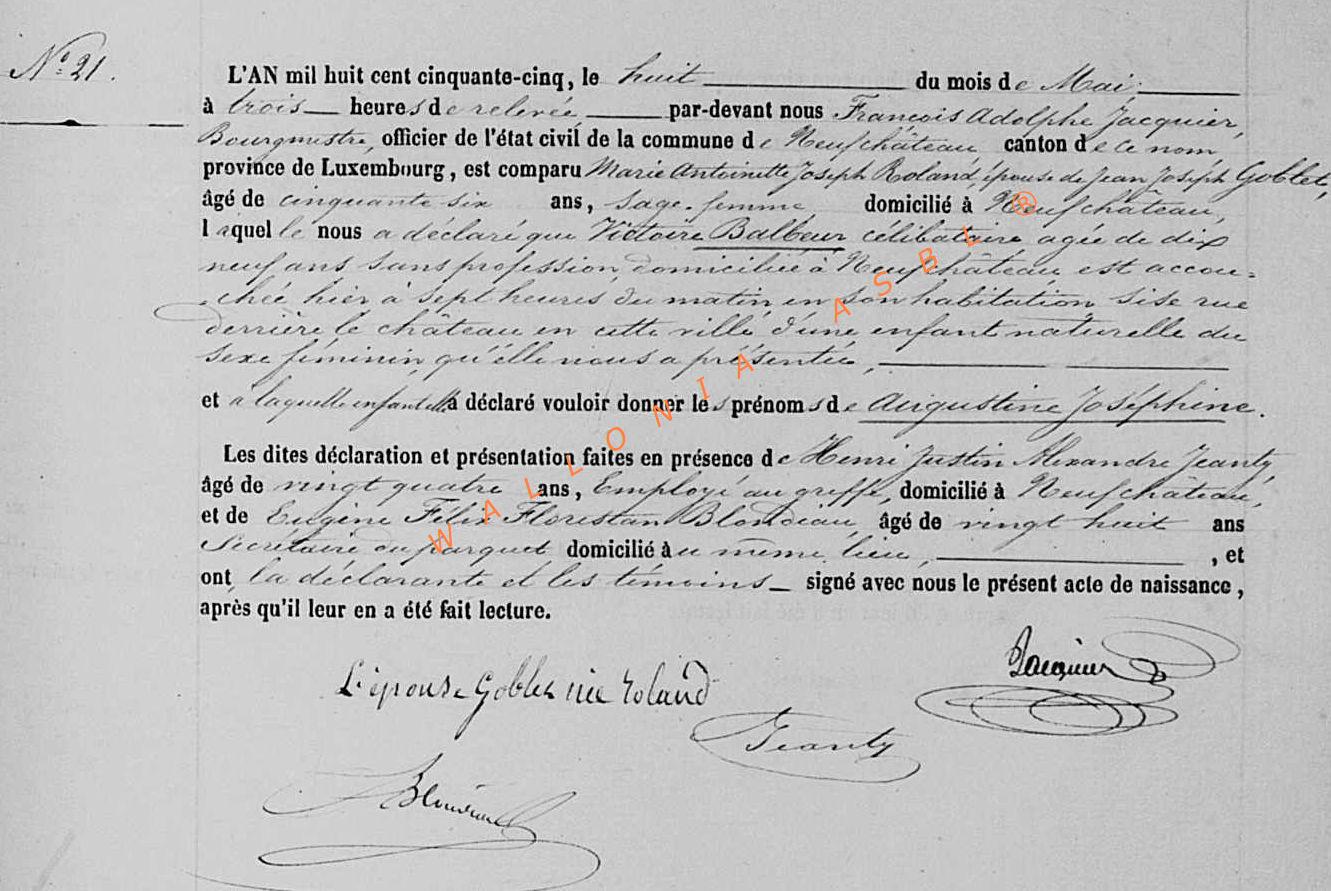 Nº 21.
L'AN mil huit cent cinquante-cinq, le huit du mois de Mai,
à trois heures de relevée, par-devant nous François Adolphe Jacquier,
Bourgmestre, officier de l'état civil de la commune de Neufchâteau canton de ce nom
province de Luxembourg, est comparu Marie Antoinette Joseph Roland, épouse de Jean Joseph Goblet,
âgé de cinquante six ans, sage-femme domicilié à Neufchâteau,
laquelle nous a déclaré que Victoire Balbeur célibataire agée de dix
neuf ans sans profession, domiciliée à Neufchâteau est accou=
chée hier à sept heures du matin en son habitation sise rue
derrière le château en cette ville d'une enfant naturelle du
sexe féminin, qu'elle nous a présentée,
et à laquelle enfant elle a déclaré vouloir donner les prénoms de Augustine Joséphine.
Les dites déclaration et présentation faites en présence de Henri Justin Alexandre Jeanty
âgé de vingt quatre ans, Employé au greffe, domicilié à Neufchâteau,
et de Eugène Félix Florestan Blondiau, âgé de vingt huit ans
Secrétaire du parquet domicilié au même lieu, , et
ont la déclarante et les témoins signé avec nous le présent acte de naissance,
après qu'il leur en a été fait lecture.
Jacquier
L'épouse Goblet née Roland
Jeanty
Blondiau
WALLONIA ASBL ®